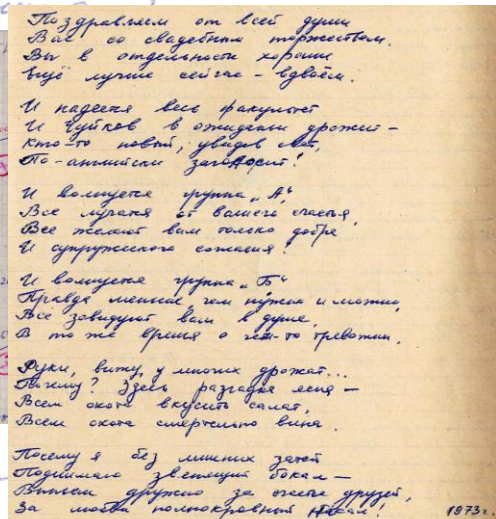 Поздравляем от всей души
Вас со свадебным торжеством.
Вы в отдельности хороши
Ещё лучше сейчас - вдвоём.
И надеется весь факультет
И Чуйков в ожиданьи дрожит -
Кто-то новый, увидев свет,
По-английски заговорит!
И волнуется группа „А“,
Все лучатся от вашего счастья,
Все желают вам только добра
И супружеского согласия.
И волнуется группа „Б“
Правда меньше, чем нужно и можно,
Все завидуют вам в душе,
В то же время о чем-то тревожны.
Руки, вижу, у многих дрожат...
Почему? Здесь разгадка ясна -
Всем охота вкусить салат,
Всем охота смертельно вина.
Посему я без лишних затей
Поднимаю звенящий бокал -
Выпьем дружно за счастье друзей,
За любви полнокровный накал!
1973 г.